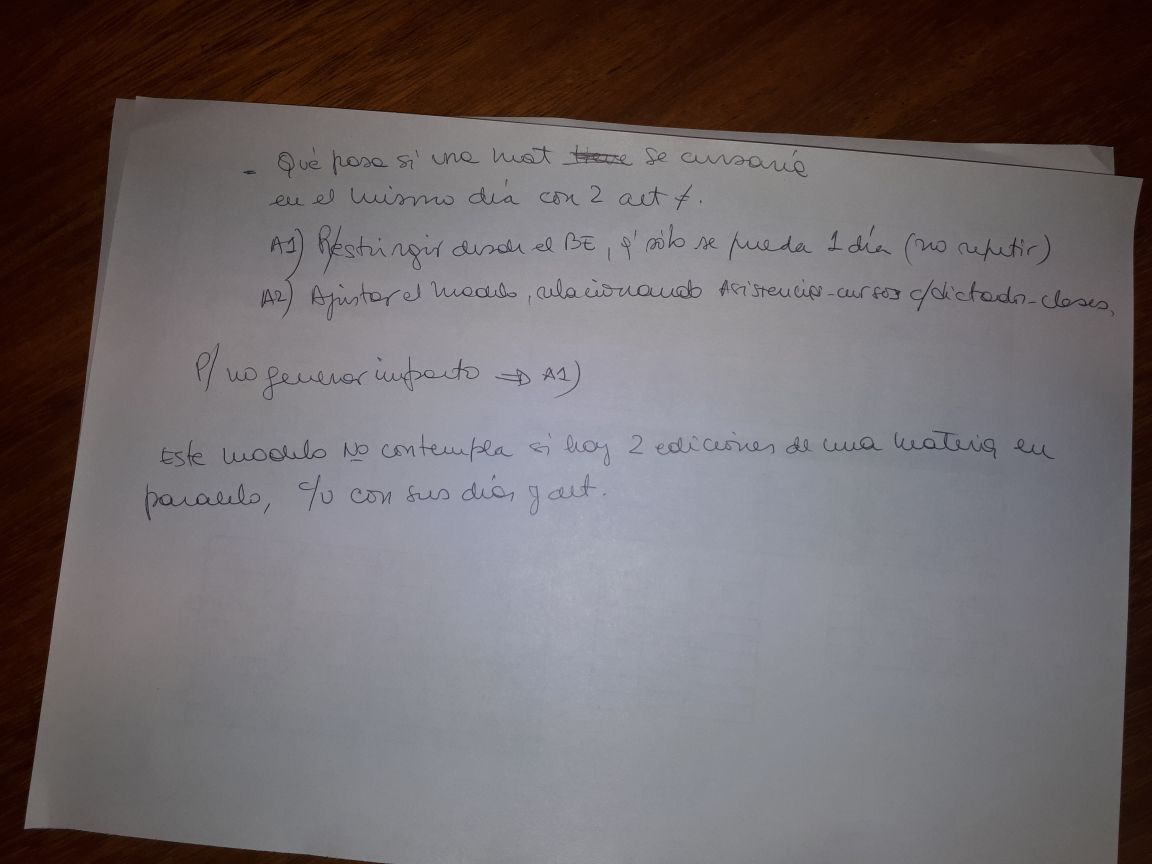 - Qué pasa si una mat se cursaría
en el mismo día con 2 act ≠.
A1) Restringir desde el BE, q' sólo se pueda 1 día (no repetir)
A2) Ajustar el modelo, relacionando Asistencias-cursos c/dictado-clases,
P/ no generar impacto ⇒ A1)
Este modelo NO contempla si hay 2 ediciones de una materia en
paralelo, c/u con sus días y act.